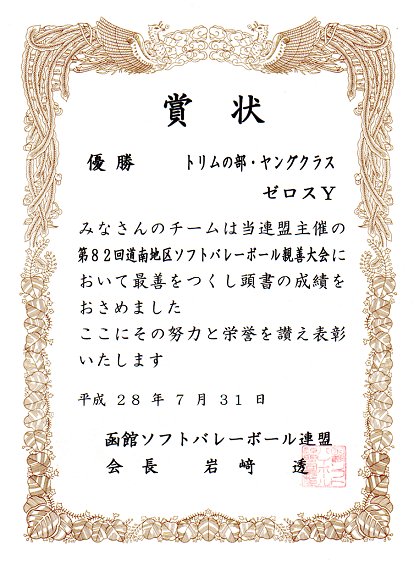 賞状
優勝 トリムの部・ヤングクラス
ゼロスY
みなさんのチームは当連盟主催の
第82回道南地区ソフトバレーボール親善大会に
おいて最善をつくし頭書の成績を
おさめました
ここにその努力と栄誉を讃え表彰
いたします
平成 28 年 7 月 31 日
函館ソフトバレーボール連盟
会長 岩﨑 透